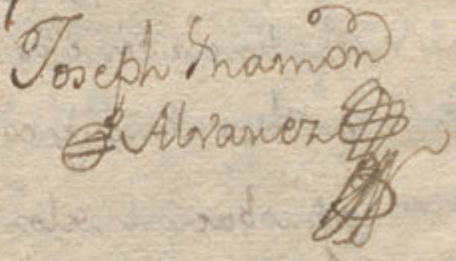 Joseph Ramon
Alvarez